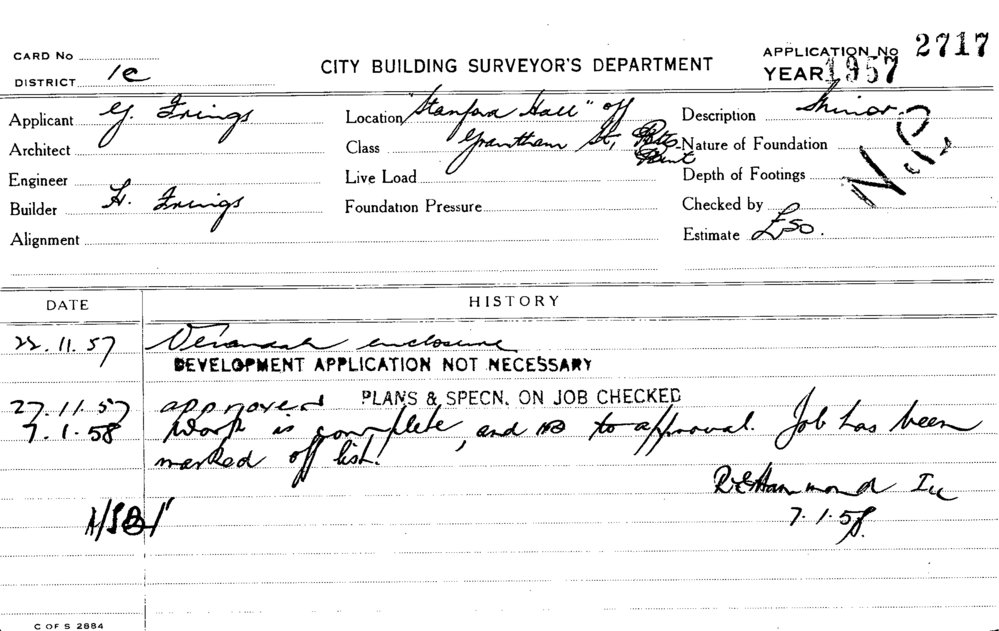 CARD No
DISTRICT 1c
CITY BUILDING SURVEYOR'S DEPARTMENT
APPLICATION No 2717
YEAR 1957
Applicant G. Frings
Architect
Engineer
Builder H. Frings
Alignment
Location "Stanford Hall" off
Class Grantham St, Potts Point
Live Load
Foundation Pressure
Description Minor.
Nature of Foundation
Depth of Footings
Checked by
Estimate £50.
N.D.
DATE HISTORY
22.11.57 Verandah enclosure
DEVELOPMENT APPLICATION NOT NECESSARY
PLANS & SPECN. ON JOB CHECKED
27.11.57 approved
7.1.58 Work is complete, and is to approval. Job has been
marked off list.
R.E. Hammond
7.1.58.
C OF S 2884